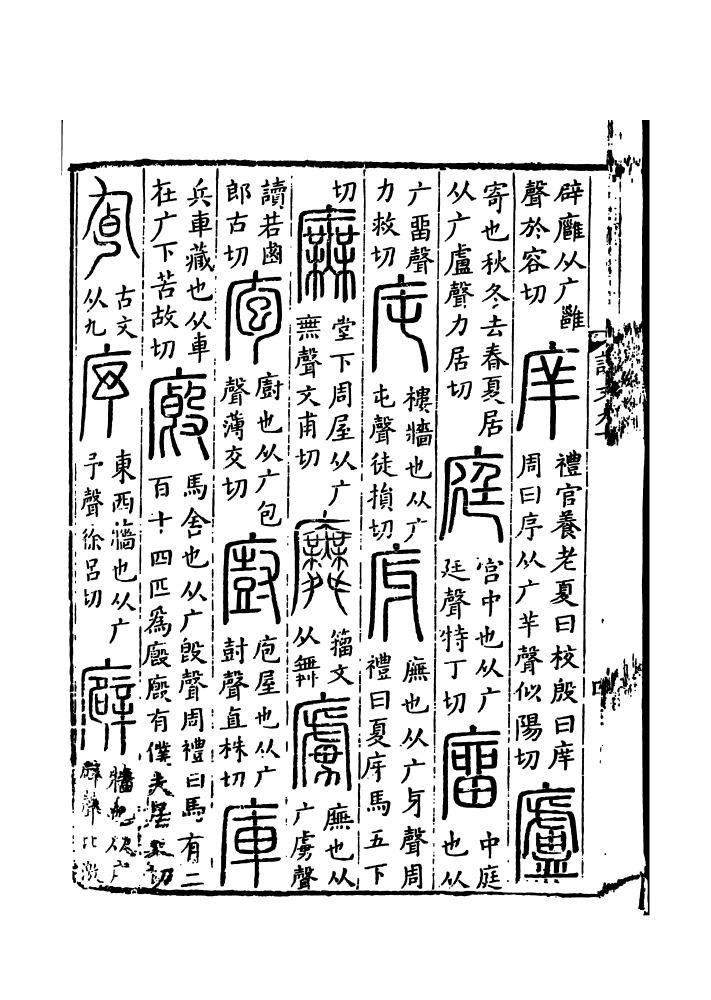 辟廱从广雝聲於容切庠禮官養老夏曰校殷曰庠周曰序从广羊聲似陽切廬
寄也秋冬去春夏居从广盧聲力居切庭宫中也从广廷聲特丁切廇中庭也从
广畱聲力救切庉樓牆也从广屯聲徒損切庌廡也从广牙聲周禮曰夏庌馬五下
切廡堂下周屋从广無聲文甫切籒文从舞㢚廡也从广虜聲
讀若鹵郎古切庖廚也从广包聲薄交切廚庖屋也从广尌聲直株切庫
兵車藏也从車在广下苦故切廄馬舍也从广㱿聲周禮曰馬有二百十四匹爲廄廄有僕夫居又切
古文从九序東西牆也从广予聲徐吕切廦牆也从广辟聲比激